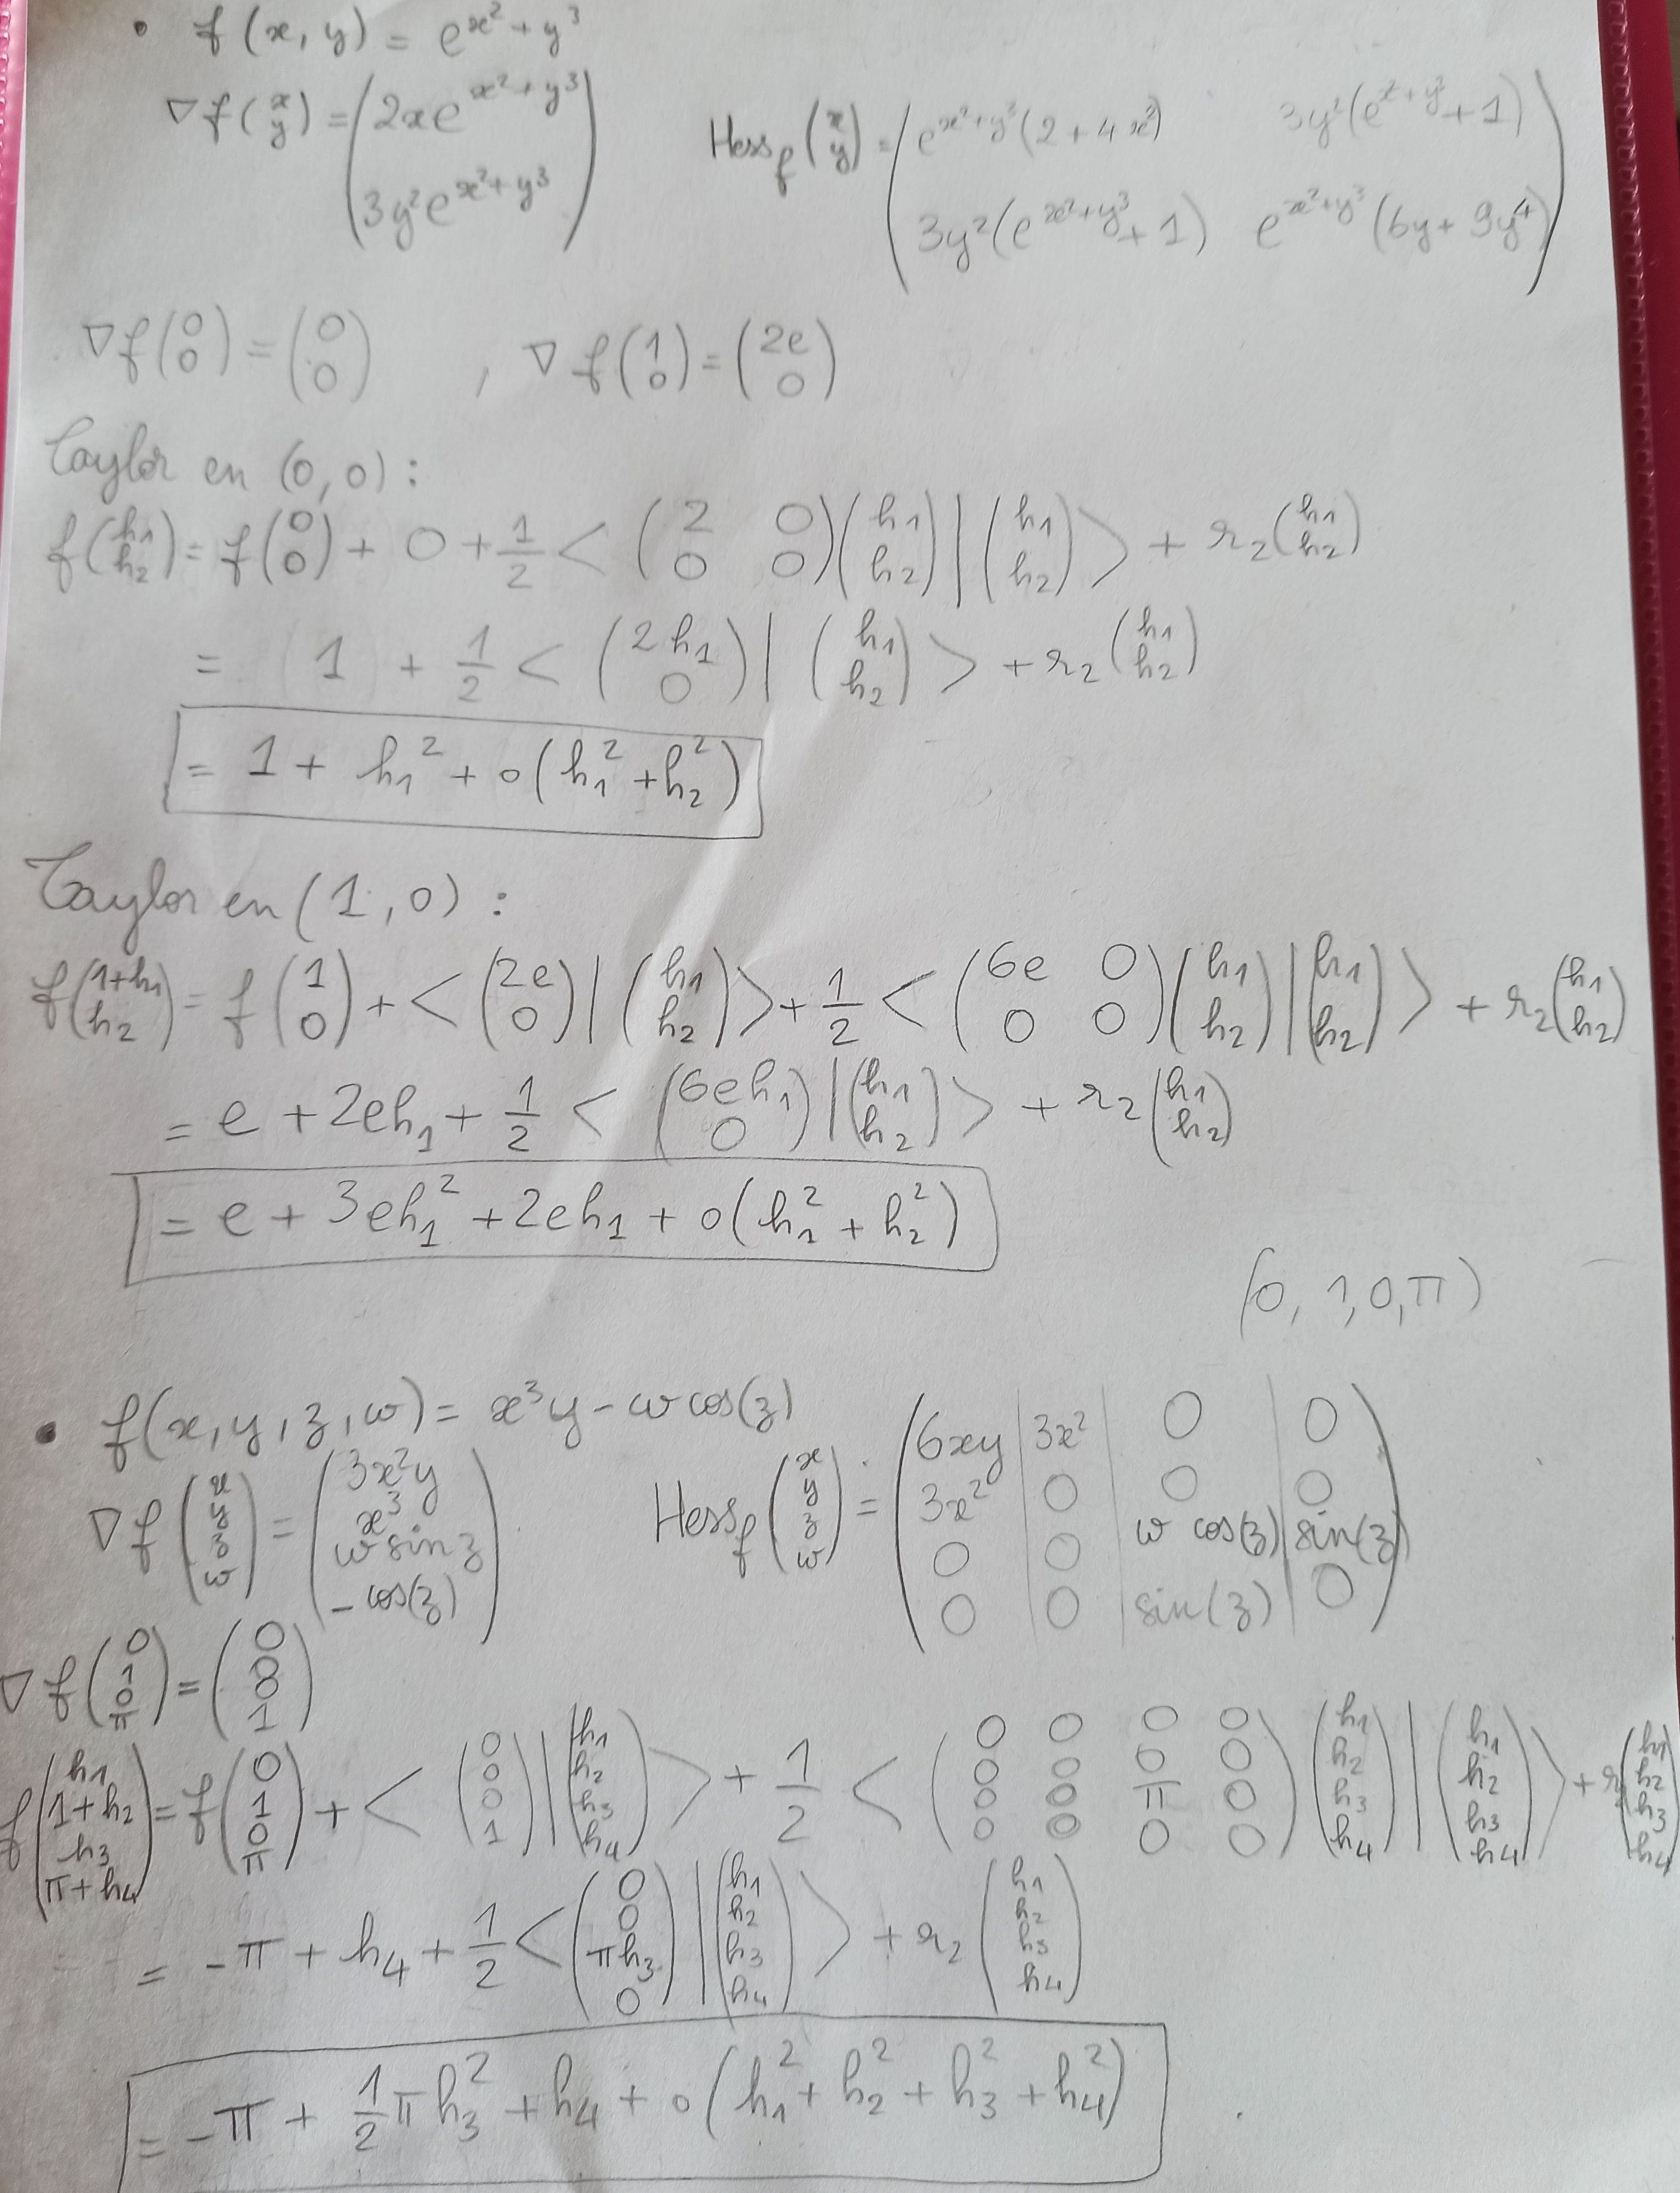 • f(x, y) = e^{x²+y³}
∇f(x y) = (2xe^{x²+y³} 3y²e^{x²+y³})
Hess_f(x y) = (e^{x²+y³}(2+4x²) 3y²(e^{x²+y³}+1) 3y²(e^{x²+y³}+1) e^{x²+y³}(6y+9y⁴))
∇f(0 0) = (0 0) , ∇f(1 0) = (2e 0)
Taylor en (0,0) :
f(h₁ h₂) = f(0 0) + 0 + 1/2 < (2 0 0 0)(h₁ h₂) | (h₁ h₂) > + r₂(h₁ h₂)
= 1 + 1/2 < (2h₁ 0) | (h₁ h₂) > + r₂(h₁ h₂)
= 1 + h₁² + o(h₁²+h₂²)
Taylor en (1,0) :
f(1+h₁ h₂) = f(1 0) + < (2e 0) | (h₁ h₂) > + 1/2 < (6e 0 0 0)(h₁ h₂) | (h₁ h₂) > + r₂(h₁ h₂)
= e + 2eh₁ + 1/2 < (6eh₁ 0) | (h₁ h₂) > + r₂(h₁ h₂)
= e + 3eh₁² + 2eh₁ + o(h₁² + h₂²)
(0, 1, 0, π)
• f(x, y, z, w) = x³y - w cos(z)
∇f(x y z w) = (3x²y x³ w sin z - cos(z))
Hess_f(x y z w) = (6xy 3x² 0 0 3x² 0 0 0 0 0 w cos(z) sin(z) 0 0 sin(z) 0)
∇f(0 1 0 π) = (0 0 1)
f(h₁ 1+h₂ h₃ π+h₄) = f(0 1 0 π) + < (0 0 0 1) | (h₁ h₂ h₃ h₄) > + 1/2 < (0 0 0 0 0 0 0 0 0 0 π 0 0 0 0 0)(h₁ h₂ h₃ h₄) | (h₁ h₂ h₃ h₄) > + r₂(h₁ h₂ h₃ h₄)
= -π + h₄ + 1/2 < (0 0 πh₃ 0) | (h₁ h₂ h₃ h₄) > + r₂(h₁ h₂ h₃ h₄)
= -π + 1/2 πh₃² + h₄ + o(h₁² + h₂² + h₃² + h₄²)